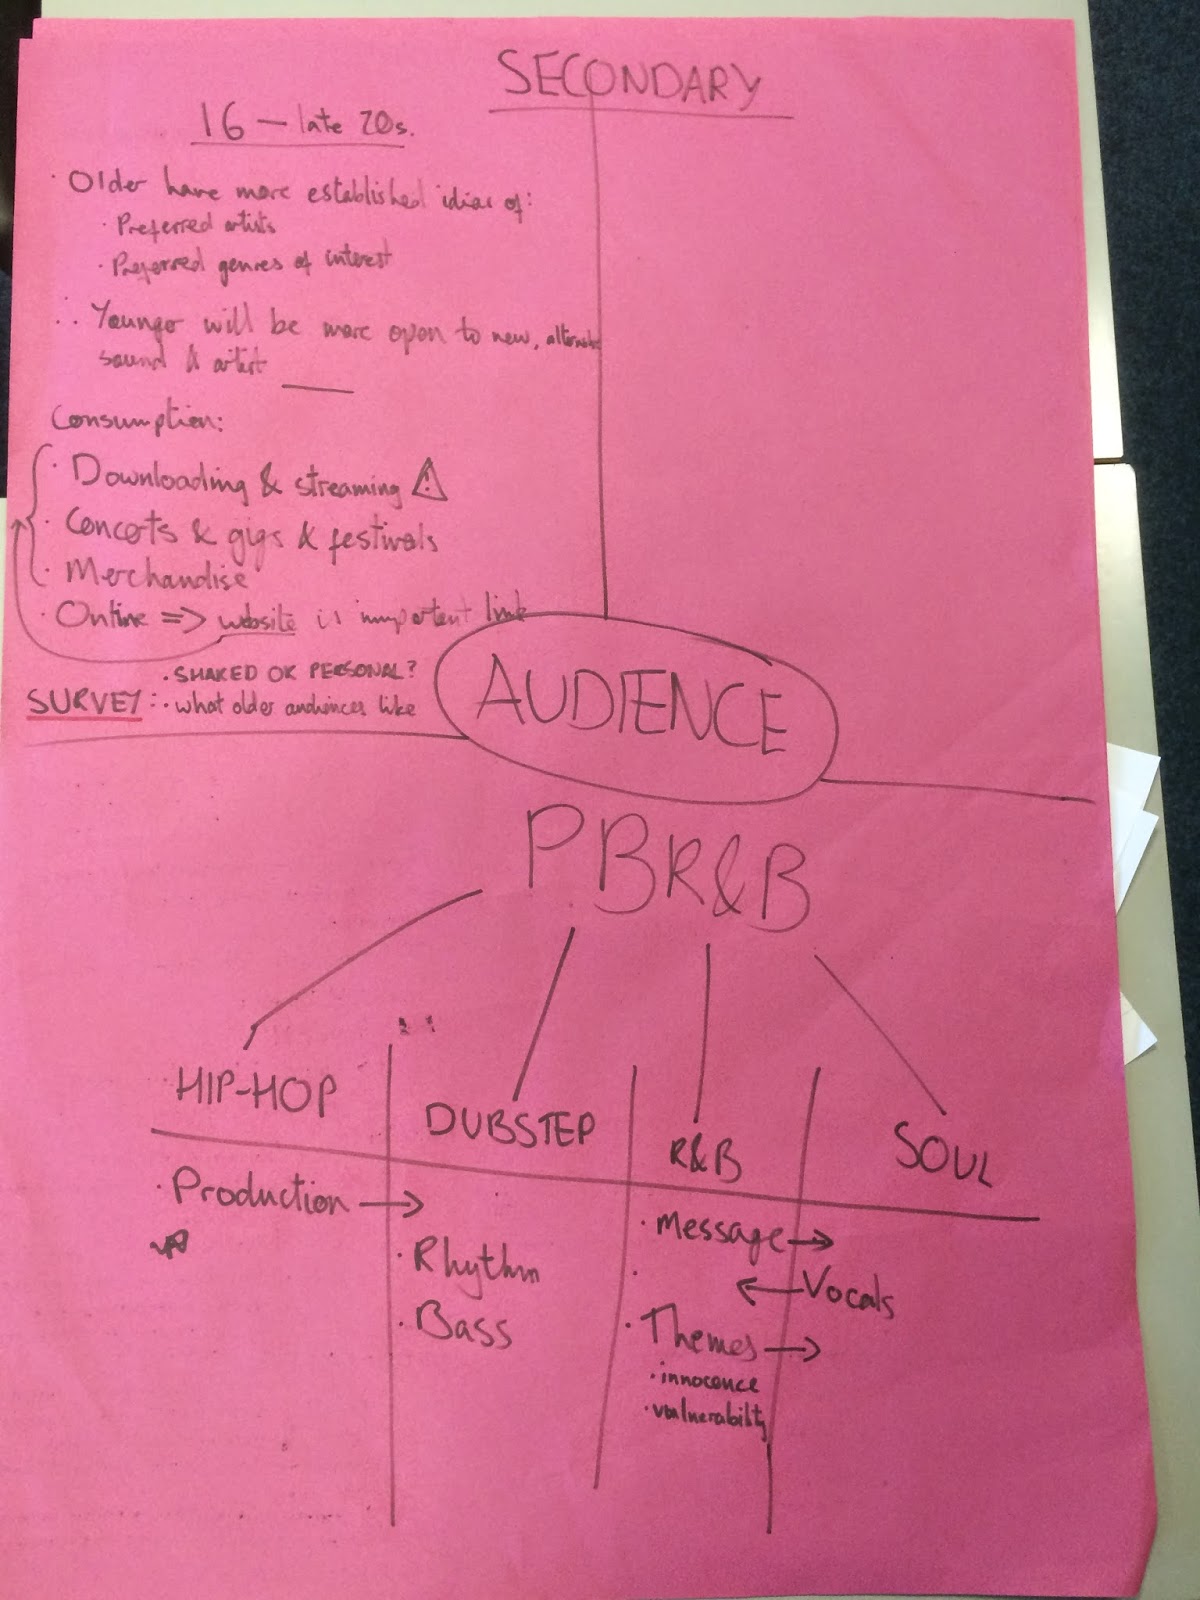 SECONDARY
16 — late 20s.
· Older have more established idias of:
· Preferred artists
· Preferred genres of interest
∴ Younger will be more open to new, alternate
sound & artist
Consumption:
· Downloading & streaming ⚠
· Concerts & gigs & festivals
· Merchandise
· Online => website is important link
· SHARED OR PERSONAL?
SURVEY: · what older audiences like
AUDIENCE
PBR&B
HIP-HOP
DUBSTEP
R&B
SOUL
· Production →
· Rhythm
· Bass
· Message →
← Vocals
· Themes →
· innocence
· vulnerability